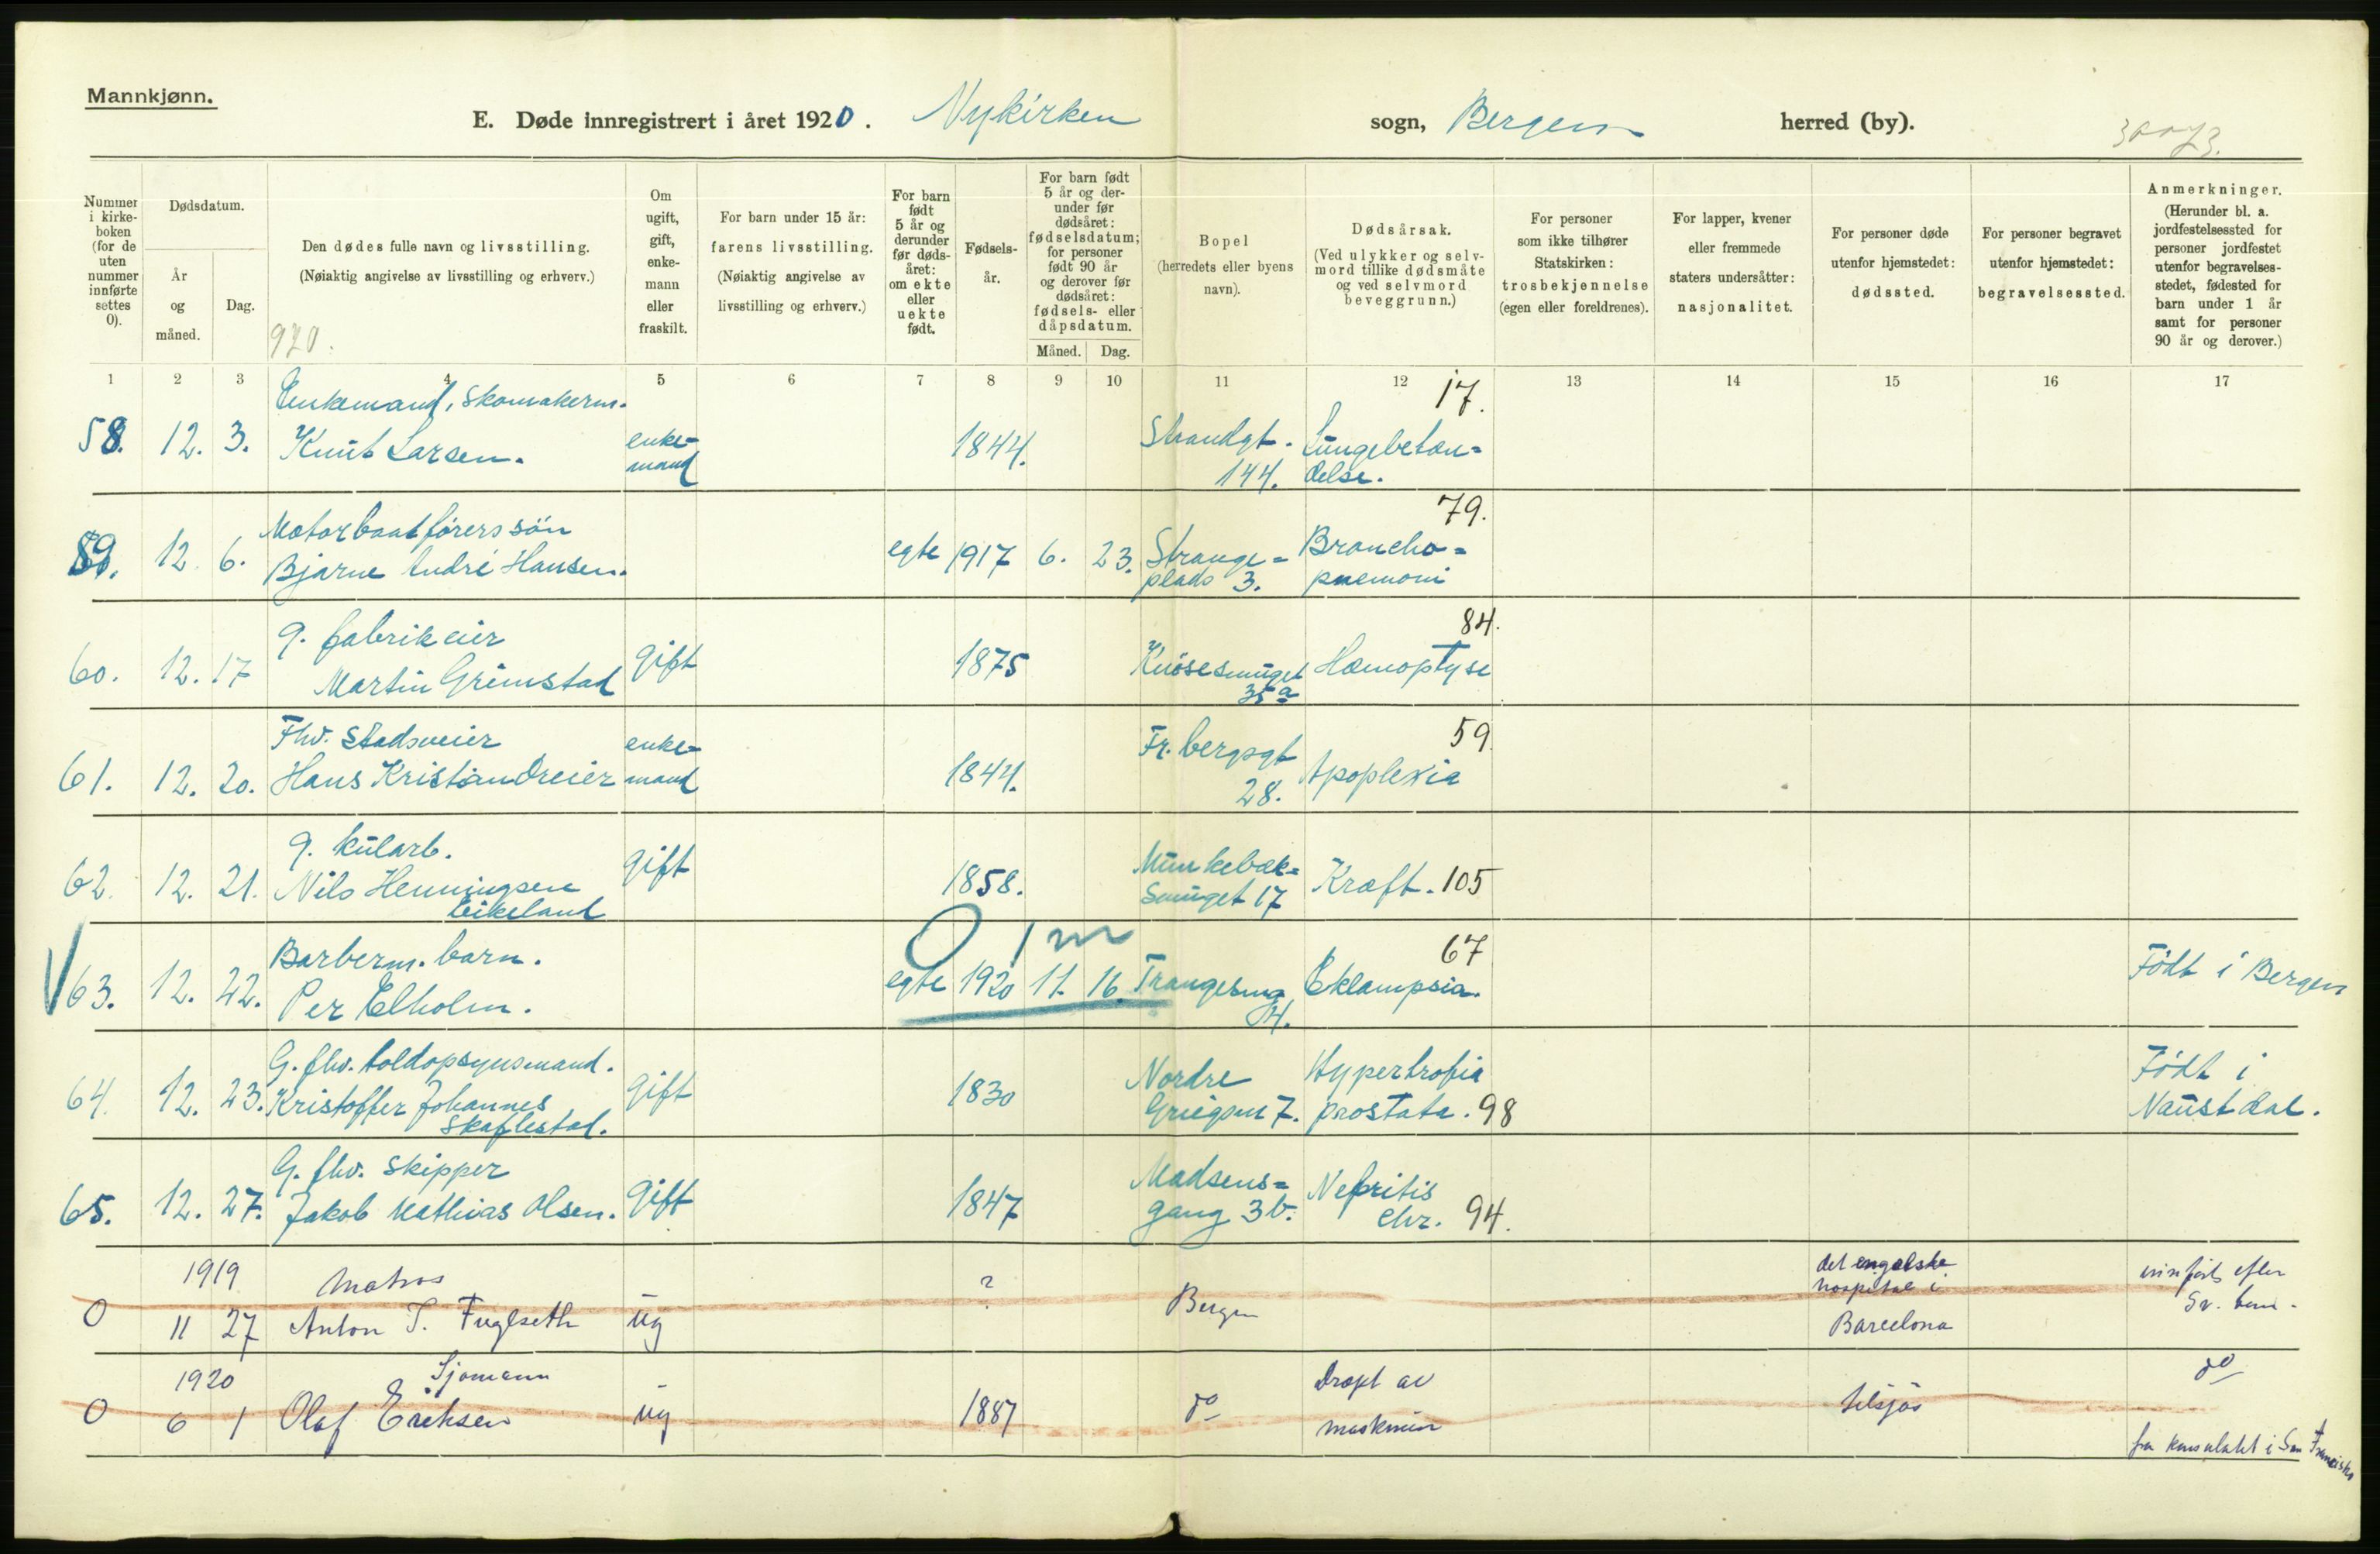 Mannkjønn.
E. Døde innregistrert i året 1920. Nykirken sogn, Bergen herred (by).
Nummer i kirke-boken (for de uten nummer innførte settes 0).
Dødsdatum.
År og måned.
Dag.
Den dødes fulle navn og livsstilling.
(Nøiaktig angivelse av livsstilling og erhverv.)
920.
Om ugift, gift, enke-mann eller fraskilt.
For barn under 15 år:
farens livsstilling.
(Nøiaktig angivelse av livsstilling og erhverv.)
For barn født 5 år og derunder før døds-året: om ekte eller uekte født.
Fødsels-år.
For barn født 5 år og der-under før dødsåret: fødselsdatum; for personer født 90 år og derover før dødsåret: fødsels- eller dåpsdatum.
Måned. Dag.
Bopel
(herredets eller byens navn).
Dødsårsak.
(Ved ulykker og selv-mord tillike dødsmåte og ved selvmord beveggrunn.)
For personer som ikke tilhører Statskirken:
trosbekjennelse
(egen eller foreldrenes).
For lapper, kvener eller fremmede staters undersåtter:
nasjonalitet.
For personer døde utenfor hjemstedet:
dødssted.
For personer begravet utenfor hjemstedet:
begravelsessted.
Anmerkninger.
(Herunder bl. a. jordfestelsessted for personer jordfestet utenfor begravelses-stedet, fødested for barn under 1 år samt for personer 90 år og derover.)
1 2 3 4 5 6 7 8 9 10 11 12 13 14 15 16 17
Enkemand, Skomakerm. 17.
58. 12. 3. Knut Larsen. enke-mand 1844. Strandgt. 144. Lungebetæn-delse.
Motorbaatførers søn 79.
59. 12. 6. Bjarne André Hansen. egte 1917 6. 23. Strange-plads 3. Broncho-pnemoni
g. fabrikeier 84.
60. 12. 17 Martin Grimstad gift 1875 Knøsesmuget 35a Hæmoptyse
Fhv. Stadsveier 59
61. 12. 20. Hans Kristian Dreier enke-mand 1844. Fr. bergsgt 28. Apoplexia
g. kularb.
62. 12. 21. Nils Henningsen Eikeland gift 1858. Munkebæk-smuget 17 Kræft. 105
Barberm. barn. 0 1 m 67
63. 12. 22. Per Elholm. egte 1920 11. 16. Trangesmg 14. Eklampsia. Født i Bergen
G. fhv. toldopsynsmand.
64. 12. 23. Kristoffer Johannes Skaflestad. gift 1830 Nordre Griegsm 7. Hypertrofia prostata. 98 Født i Naustdal.
G. fhv. Skipper
65. 12. 27. Jakob Mathias Olsen. gift 1847 Madsens-gang 3b. Nefritis chr. 94.
1919 Matros
0 11 27 Anton T. Fuglseth ug ? Bergen det engelske hospital i Barcelona innført efter
1920 Sjømann
0 6 1 Olaf Eriksen ug 1887 do Dræpt av maskinen tilsjøs do
fra konsulatet i San Francisko